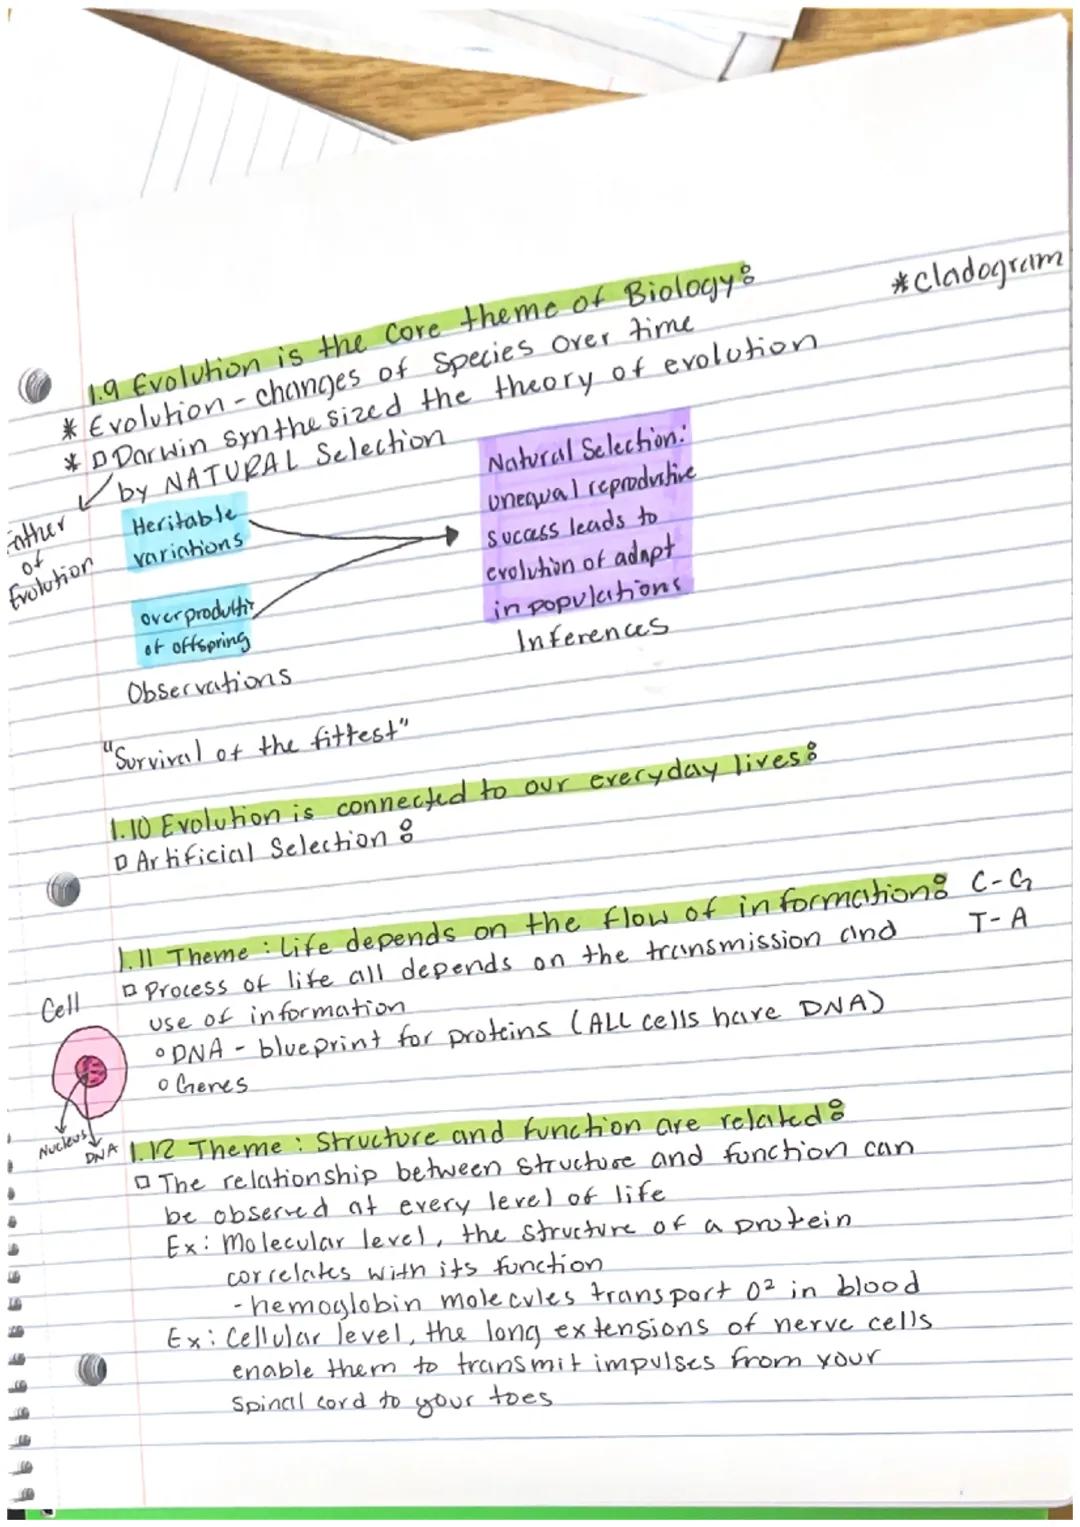 *cladogram
1.9 Evolution is the Core theme of Biology:
* Evolution - changes of Species over time
* Darwin synthesized the theory of evolution
by NATURAL Selection
Father
of
Evolution
Heritable
variations
overproductio
of offspring
Observations
Natural Selection:
unequal reproductive
success leads to
evolution of adapt
in populations
Inferences
"Survival of the fittest"
1.10 Evolution is connected to our everyday lives:
Artificial Selection:
1.11 Theme: Life depends on the flow of information:
C-G
T-A
Process of life all depends on the transmission and
use of information
DNA - blueprint for proteins (ALL cells have DNA)
Genes
Cell
Nucleus
DNA
1.12 Theme: Structure and function are related:
The relationship between structure and function can
be observed at every level of life
Ex: Molecular level, the structure of a protein
correlates with its function
- hemoglobin molecules transport O² in blood
Ex: Cellular level, the long extensions of nerve cells
enable them to transmit impulses from your
Spinal cord to your toes